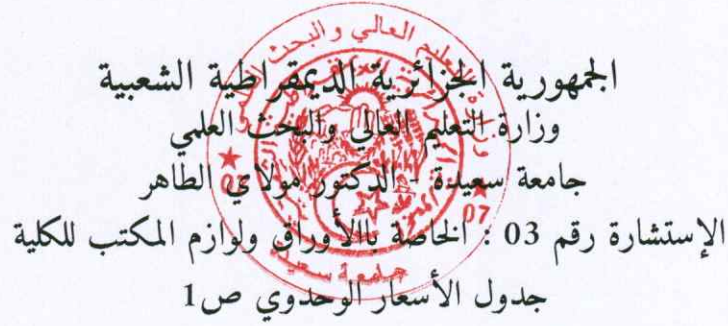 الجمهورية الجزائرية الديمقراطية الشعبية
وزارة التعليم العالي والبحث العلمي
جامعة سعيدة - الدكتور مولاي الطاهر
الإستشارة رقم 03 : الخاصة باالأوراق ولوازم المكتب للكلية
جدول الأسعار الوحدوي ص1
التعليم العالي والبحث
07
جامعة سعيدة